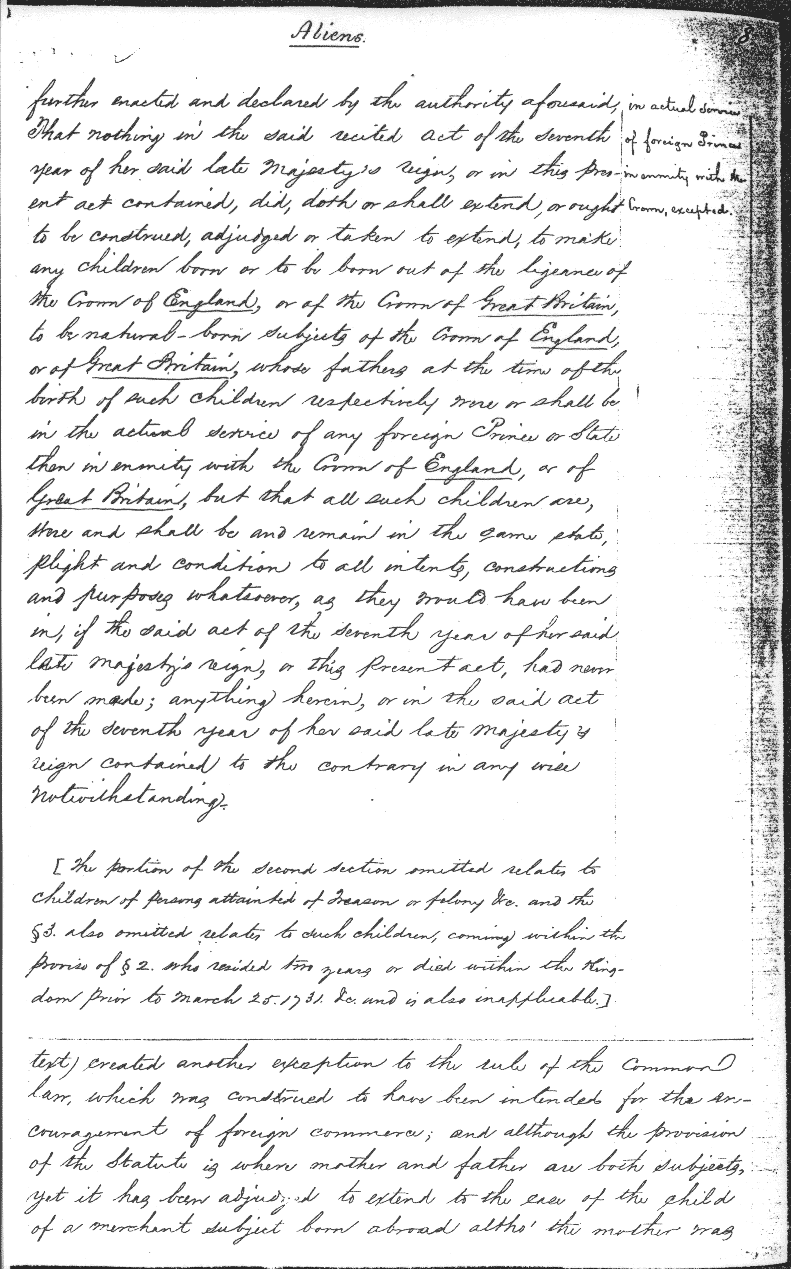 Aliens.
8
further enacted and declared by the authority aforesaid,
That nothing in the said recited act of the seventh
year of her said late Majesty's reign, or in this pres-
ent act contained, did, doth or shall extend, or ought
to be construed, adjudged or taken to extend, to make
any children born or to be born out of the ligeance of
the Crown of England, or of the Crown of Great Britain,
to be natural-born subjects of the Crown of England,
or of Great Britain, whose fathers at the time of the
birth of such children respectively were or shall be
in the actual service of any foreign Prince or State
then in enmity with the Crown of England, or of
Great Britain, but that all such children are,
were and shall be and remain in the same state,
plight and condition to all intents, constructions
and purposes whatsoever, as they would have been
in, if the said act of the seventh year of her said
late majesty's reign, or this present act, had never
been made; anything herein, or in the said act
of the seventh year of her said late majesty's
reign contained to the contrary in any wise
notwithstanding.
in actual service
of foreign Princes
in enmity with the
Crown, excepted.
[The portion of the second section omitted relates to
children of persons attainted of Treason or felony &c. and the
§3. also omitted relates to such children, coming within the
proviso of §2. who resided two years or died within the King-
dom prior to March 25. 1731. &c. and is also inapplicable.]
text) created another exception to the rule of the Common
law, which was construed to have been intended for the en-
couragement of foreign commerce; and although the provision
of the Statute is where mother and father are both subjects,
yet it has been adjudged to extend to the case of the child
of a merchant subject born abroad altho' the mother was